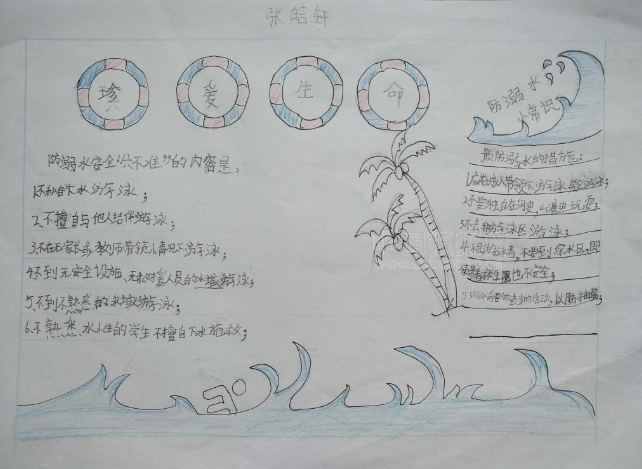 张皓轩
珍爱生命
防溺水安全"六不准"的内容是:
1.不私自下水游泳;
2.不擅自与他人结伴游泳;
3.不在无家长或教师带领的情况下游泳;
4.不到无安全设施、无救援人员的水域游泳;
5.不到不熟悉的水域游泳;
6.不熟悉水性的学生不擅自下水施救;
防溺水
小常识
预防溺水的措方施:
2.不要独自在河边,山塘边玩耍;
3.不去非游泳区游泳;
4.不会游泳者,不要到深水区,即
使带着救生圈也不安全;